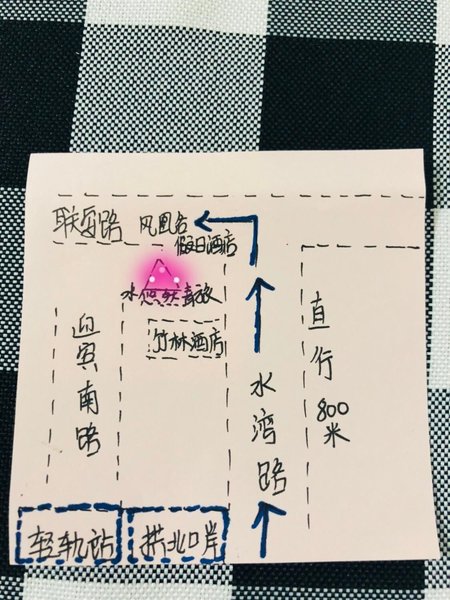 联安路
凤凰谷
假日酒店
水悠然
竹林酒店
迎宾南路
水湾路
直行800米
轻轨站
拱北口岸